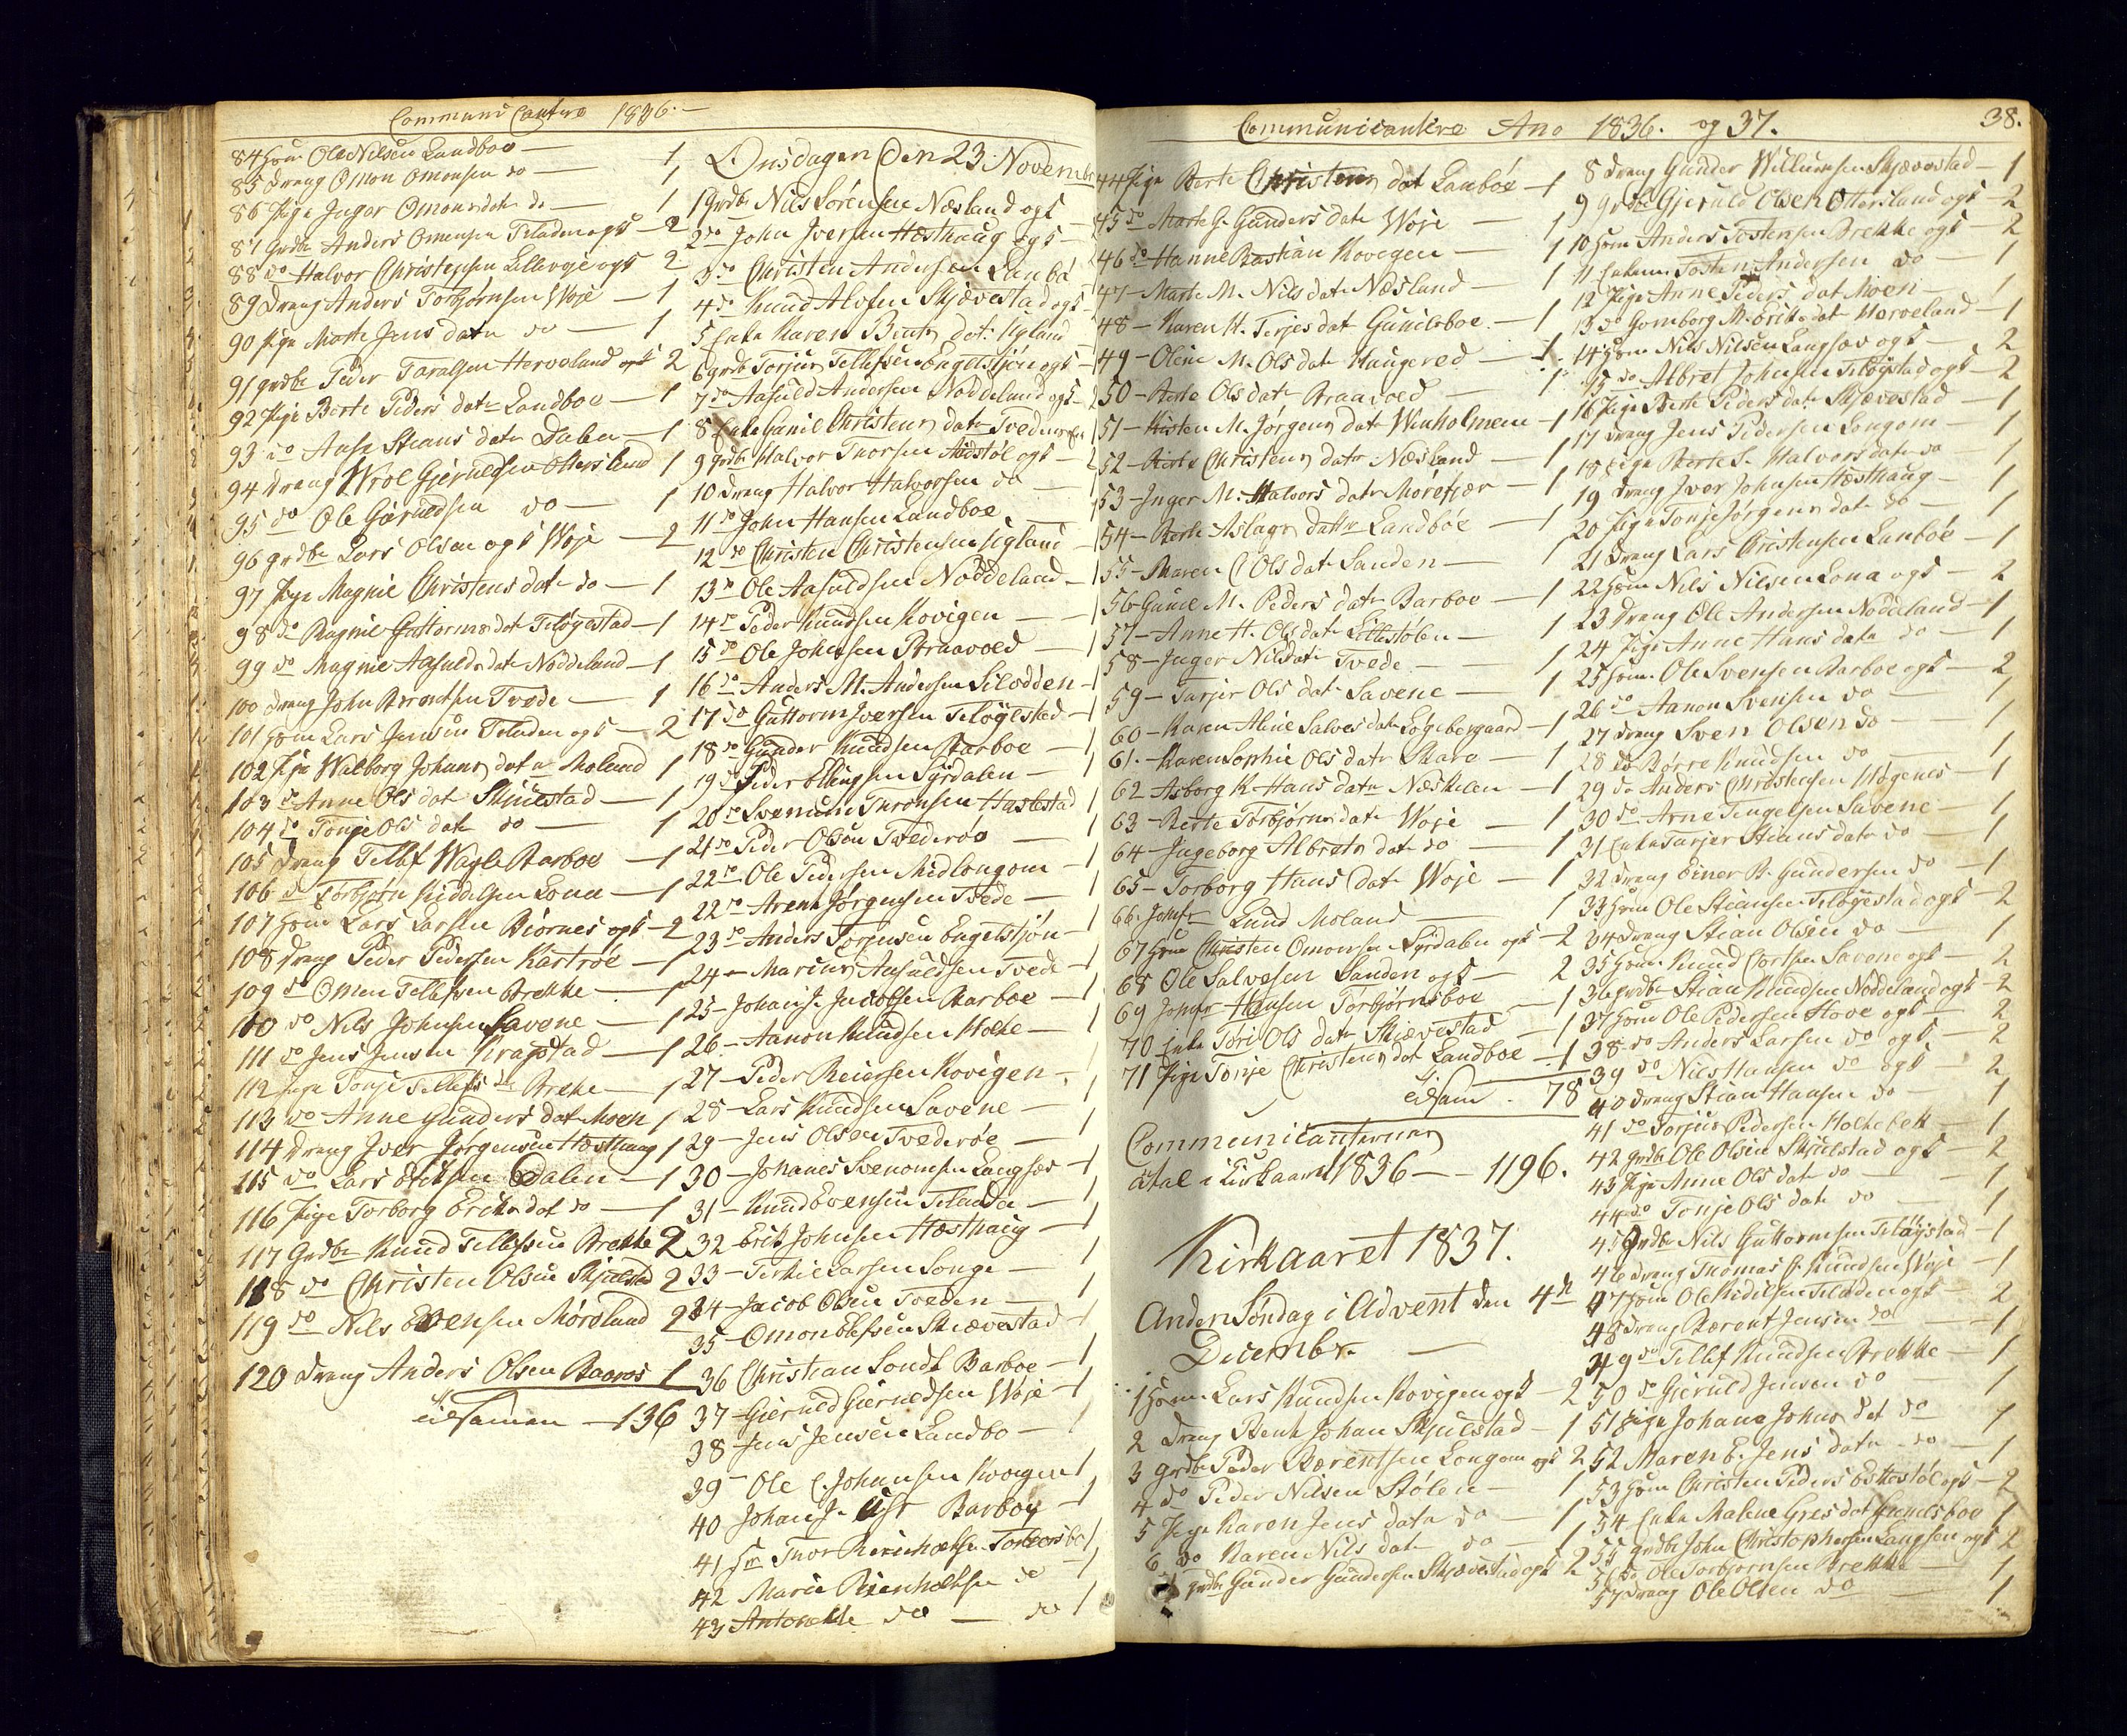 Communicantere 1836.
84 Huus Ole Nilsen Landboe — 1
85 dreng Omon Omonsen do — 1
86 Pige Inger Omonsdatr do — 1
87 Grdbr Anders Omonsen Teladen ogs — 2
88 do Halvor Christensen Lilleveje ogs 2
89 Dreng Anders Torbjørnsen Woje — 1
90 Pige Marte Jens datr do — 1
91 grdbr Peder Taralsen Herveland ogs 2
92 Pige Berte Peders datr Landboe — 1
93 do Aase Stians datr Dalen — 1
94 Dreng Wroe Gjeruldsen Ottersland 1
95 do Ole Gjeruldsen do — 1
96 grdbr Lars Olsen ogs Woje — 2
97 Pige Magnie Christens datr do — 1
98 do Ragnie Guttorms dat Teløgestad — 1
99 do Magnie Aasulds datr Noddeland — 1
100 dreng John Berentsen Tvede — 1
101 Huus Lars Jensen Teladen ogs — 2
102 Pige Walborg Johans datr Moland 1
103 do Anne Ols dat Skiulestad — 1
104 do Tonje Ols datr do — 1
105 Dreng Tellef Wagle Barboe — 1
106 do Torbjørn Kiddelsen Lona — 1
107 Huus Lars Larsen Biørnes ogs — 2
108 dreng Peder Pedersen Kartrøe — 1
109 do Omen Tellefsen Brekke — 1
110 do Nils Johnsen Savene — 1
111 do Jens Jensen Kragstad — 1
112 Pige Tonje Tellefs dr Brekke — 1
113 do Anne Gunders dat Moen 1
114 dreng Iver Jørgensen Hæsthaug 1
115 do Lars Eriksen Dalen — 1
116 Pige Torborg Eriks dat do — 1
117 Grdbr Knud Tellefsen Brekke 2
118 do Christen Olsen Skjulestad 2
119 do Nils Evensen Mørdland 2
120 Dreng Anders Olsen Baaros 1
tilsamen — 136
Onsdagen Den 23 Novembr
1 Grdbr Nils Sørensen Næsland ogs
2 do John Iversen Hæsthaug ogs —
3 do Christen Andersen Lanbø
4 do Knud Alofsen Skjævestad ogs —
5 Enke Karen Bents dat. Tigland
6 grdbr Torjus Tellefsen Engelstjøn ogs —
7 do Aasuld Andersen Noddeland ogs —
8 Enke Gunil Christens datr Tvedmoen
9 grdbr Halvor Thorsen Austøl ogs —
10 Dreng Halvor Halvorsen do —
11 do John Hansen Landboe
12 do Christen Christensen Tigland
13 do Ole Aasuldsen Noddeland —
14 do Peder Knudsen Kovigen —
15 do Ole Johnsen Braavold — 1
16 do Anders M. Andersen Silodden — 1
17 do Guttorm Iversen Teløgestad — 1
18 do Gunder Knudsen Barboe — 1
19 do Peder Ellingsen Syrdalen — 1
20 do Svenum Thronsen Haslestad 1
21 do Peder Olsen Tvederøe — 1
22 do Ole Pedersen Medlongom — 1
22 do Arent Jørgensen Tvede — 1
23 do Anders Torjusen Engelstjøn — 1
24 — Marcus Aasuldsen Tvede — 1
25 — Johan J. Jacobsen Barboe — 1
26 — Aanon Knudsen Holte — 1
27 — Peder Reiersen Kovigen — 1
28 — Lars Knudsen Savene — 1
29 — Jens Olsen Tvederøe — 1
30 — Johanes Svenomsen Langsæ — 1
31 — Knud Evensen Teladen — 1
32 — Erik Johnsen Hæsthaug — 1
33 — Terkil Larsen Songe — 1
34 — Jacob Olsen Tveden — 1
35 — Omon Olefsen Skiævestad — 1
36 Christian Sondt Barboe — 1
37 — Gieruld Gieruldsen Woje — 1
38 — Jens Jensen Landbo — 1
39 — Ole C. Johansen Kovigen 1
40 Johan J. Barboe — 1
41 Hr Thor Reinholtsen 1
42 Marie Reinholtsen do 1
43 Antonette do — do 1
Communicantere Ano 1836. og 37. 38.
44 Pige Berte Christens dat Lanbøe — 1
45 do Marte G. Gunders datr Woje — 1
46 do Hanne Bastian Kovigen — 1
47 — Marte M. Nils datr Næsland — 1
48 — Karen H. Terjes dat Gunildsboe. — 1
49 — Oline M. Ols dat Haugered — 1
50 — Berte Ols datr Braavold — 1
51 — Kisten M. Jørgens dat Winholmen — 1
52 — Berte Christens datr Næsland — 1
53 — Inger M. Halvors datr Morefjær — 1
54 — Berte Aslags dattr Landbøe — 1
55 — Maren C Ols dat Sanden — 1
56 Gunil M. Peders datr Barboe — 1
57 — Anne H. Ols dat Lillestølen — 1
58 — Inger Nilsdatr Tvede — 1
59 — Tarjer Ols dat Savene — 1
60 — Karen Aline Salves datr Løgebergaard — 1
61. — Karen Sophie Ols datr Skare — 1
62 Asborg K. Hans datr Næskilen — 1
63 — Berte Torbjørns datr Woje — 1
64 — Ingeborg Albrets dat do — 1
65 — Torborg Hans dat Woje — 1
66. Jomfr Lund Moland — 1
67 Huus Christen Omonsen Syrdalen ogs — 2
68 Ole Salvesen Sanden ogs — 2
69 Jomfr Hansen Torbjørnsboe — 1
70 Enke Tori Ols datr Skiævestad — 1
71 Pige Tonje Christens dat Landboe — 1
tilsam. 78
Communicanternes
Antal i Kirkaaret 1836 — 1196.
Kirkaaret 1837.
Anden Søndag i Advent den 4de
Decembr. —
1 Huus Lars Knudsen Kovigen ogs — 2
2 Dreng Bent Johan Skjulstad — 1
3 grdbr Peder Berentsen Longom ogs 2
4 do Peder Nilsen Stølen — 1
5 Pige Karen Jens datr do — 1
6 do Karen Nils dat do — 1
7 grdbr Gunder Gundersen Skjævestad ogs 2
8 dreng Gunder Willumsen Skjævestad — 1
9 grdbr Gjeruld Olsen Ottersland ogs — 2
10 Huus Anders Tostensen Brekke ogs — 2
11 Enkem. Tosten Andersen do — 1
12 Pige Anne Peders dat Moen — 1
13 do Gomborg M. Eriks dat Herveland — 1
14 Huus Nils Nilsen Langsæv ogs — 2
15 do Albret Johnsen Teløgstad ogs — 2
16 Pige Berte Peders datr Skjævestad — 1
17 dreng Jens Pedersen Longom — 1
18 Pige Berte S. Halvors datr do 1
19 dreng Iver Johnsen Hæsthaug — 1
20 Pige Tonje Jørgens datr do — 1
21 Dreng Lars Christensen Lanbøe — 1
22 Huus Nils Nilsen Lona ogs — 2
23 Dreng Ole Andersen Noddeland — 1
24 Pige Anne Hans datr do — 1
25 Huus Ole Svensen Barboe ogs — 2
26 do Aanon Svensen do — 1
27 dreng Sven Olsen do — 1
28 do Børre Knudsen do — 1
29 do Anders Christensen Høgenes — 1
30 do Arne Tengelsen Savene — 1
31 Enke Tarjer Stians datr do — 1
32 dreng Einer B. Gundersen do — 1
33 Huus Ole Stiansen Teløgestad ogs — 2
34 dreng Stian Olsen do — 1
35 Huus Knud Cortsen Savene ogs — 2
36 grdbr Stian Knudsen Noddeland ogs — 2
37 Huus Ole Pedersen Hove ogs — 2
38 do Anders Larsen do ogs — 2
39 do Nils Hansen do ogs — 2
40 dreng Stian Hansen do — 1
41 do Torjus Pedersen Holtebek — 1
42 grdbr Ole Olsen Skjulstad ogs — 2
43 Pige Anne Ols dat do — 1
44 do Tonje Ols datr do — 1
45 Grdbr Nils Guttormsen Teløgstad — 1
46 dreng Thomas J. Knudsen Woje — 1
47 Huus Ole Kidelsen Teladen ogs — 2
48 dreng Berent Jensen do — 1
49 do Tellef Knudsen Brekke — 1
50 do Gjeruld Jensen do — 1
51 Pige Johane Johns dat do 1
52 Maren E. Jens datr do — 1
53 Huus Christen Peders Østtestøl ogs — 2
54 Enke Malene Gres dat Gunilsboe 1
55 grdbr John Christophersen Langsøn ogs 2
56 do Ole Torbjørnsen Brekke — 1
57 dreng Ole Olsen do 1